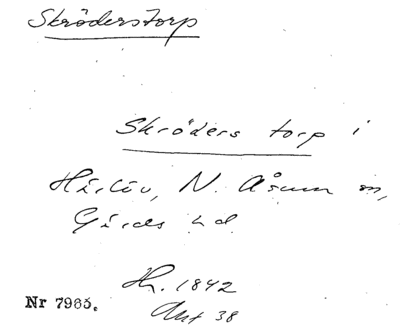 Skröderstorp
Skröders torp i
Härlöv, N. Åsum sn,
Gärds hd.
Hr. 1842
38
Nr 7965.